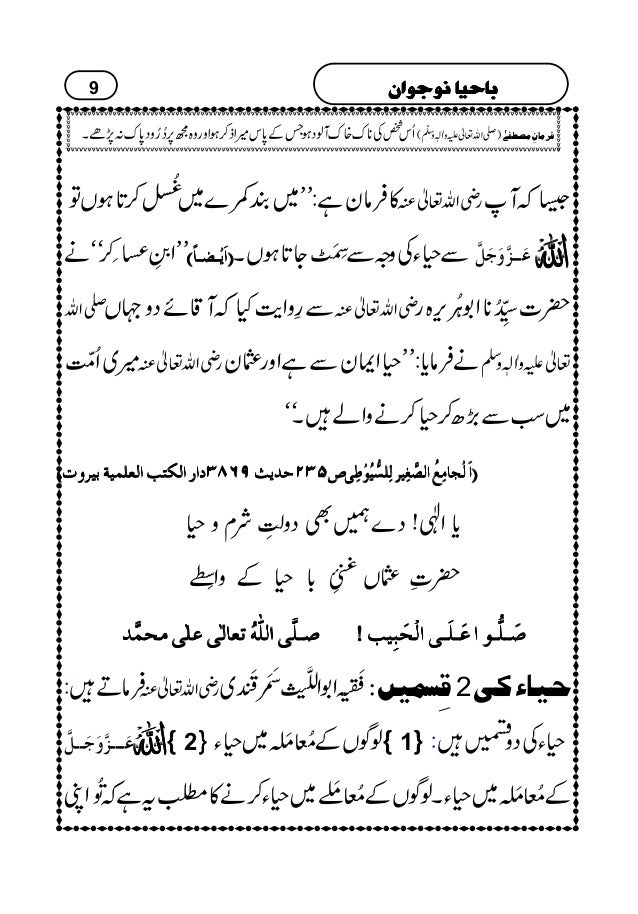 باحیا نوجوان
9
فرمانِ مصطفٰے (صلی اللہ تعالیٰ علیہ والہٖ وسلّم) اُس شخص کی ناک خاک آلود ہو جس کے پاس میرا ذکر ہو اور وہ مجھ پر دُرُود پاک نہ پڑھے۔
جیسا کہ آپ رضی اللہ تعالیٰ عنہ کا فرمان ہے: ’’میں بند کمرے میں غُسل کرتا ہوں تو
اللہ عَزَّوَجَلَّ سے حیاء کی وجہ سے سِمَٹ جاتا ہوں۔ (اَیضاً) ’’ابنِ عساکِر‘‘ نے
حضرت سیِّدُنا ابوہُریرہ رضی اللہ تعالیٰ عنہ سے رِوایت کیا کہ آقائے دو جہاں صلی اللہ
تعالیٰ علیہ والہٖ وسلم نے فرمایا: ’’حیا ایمان سے ہے اور عثمان رضی اللہ تعالیٰ عنہ میری اُمّت
میں سب سے بڑھ کر حیا کرنے والے ہیں۔‘‘
(اَلْجامِعُ الصَّغِیر لِلسُّیُوْطِی ص ۲۳۵ حدیث ۳۸۶۹ دار الکتب العلمیة بیروت
یا الٰہی! دے ہمیں بھی دولتِ شرم و حیا
حضرتِ عثماں غنیٔ با حیا کے واسِطے
صَلُّوا عَلَی الْحَبِیب ! صلَّی اللّٰهُ تعالٰی علٰی محمَّد
حیاء کی 2 قِسمیں: فَقیہ ابواللَّیث سَمَرقَندی رضی اللہ تعالیٰ عنہ فرماتے ہیں:
حیاء کی دو قِسمیں ہیں: {1} لوگوں کے مُعامَلہ میں حیاء {2} اللہ عَزَّوَجَلَّ
کے مُعامَلہ میں حیاء۔ لوگوں کے مُعامَلے میں حیاء کرنے کا مطلب یہ ہے کہ تُو اپنی